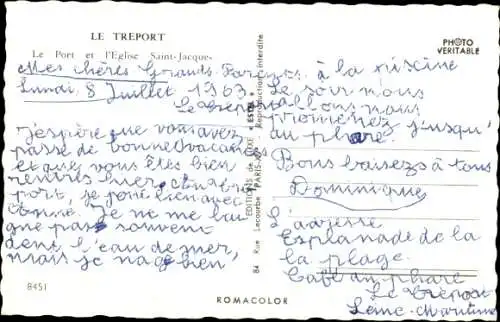 LE TREPORT
Le Port et l'Eglise Saint-Jacques
PHOTO
VERITABLE
Mes chères Grands-Parents
Lundi 8 Juillet 1963.
Le Tréport
J'espère que vous avez
passé de bonnes vacances
et que vous êtes bien
rentrés hier
port, je joue bien avec
Je ne me bai
gne pas souvent
dans l'eau de mer,
mais je nage bien
8451
EDITIONS de LUXE « ESTEL »
84 Rue Lecourbe PARIS-XVe
Reproduction interdite
à la piscine
Le soir nous
allons nous
promener jusqu'
au phare.
Bons baisers à tous
Dominique
L'adresse
Esplanade de la
la plage.
Café au phare
Le Tréport
Seine-Maritime
ROMACOLOR